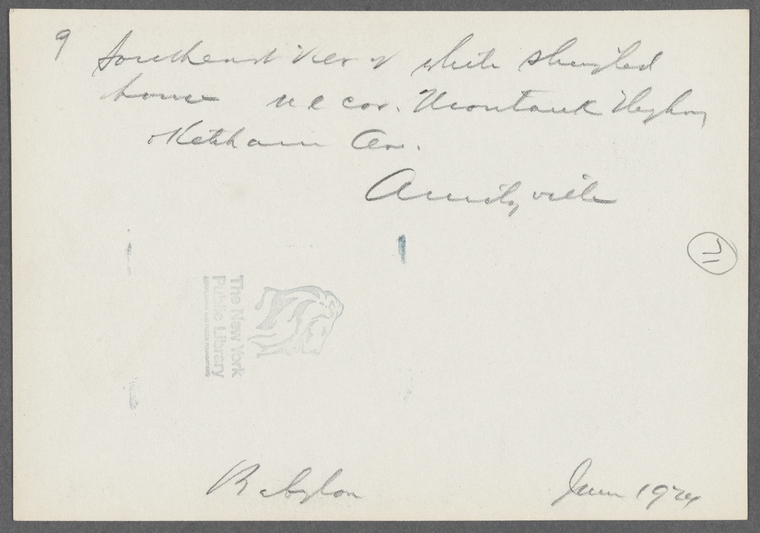 9 Southeast view of white shingled
house n e cor. Montauk Highway
& Ketcham Av.
Amityville
The New York
Public Library
Babylon
June 1924